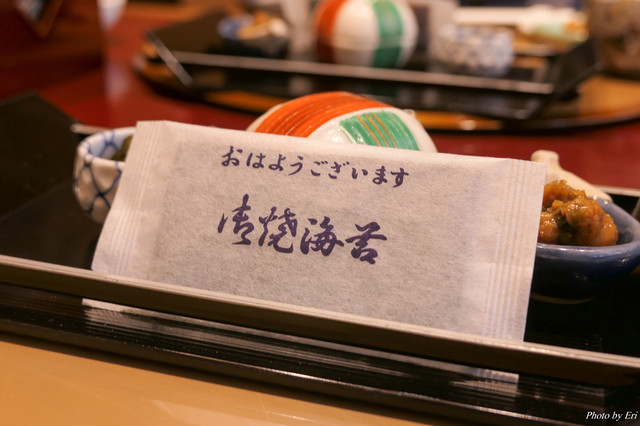 おはようございます
御焼海苔
Photo by Eri